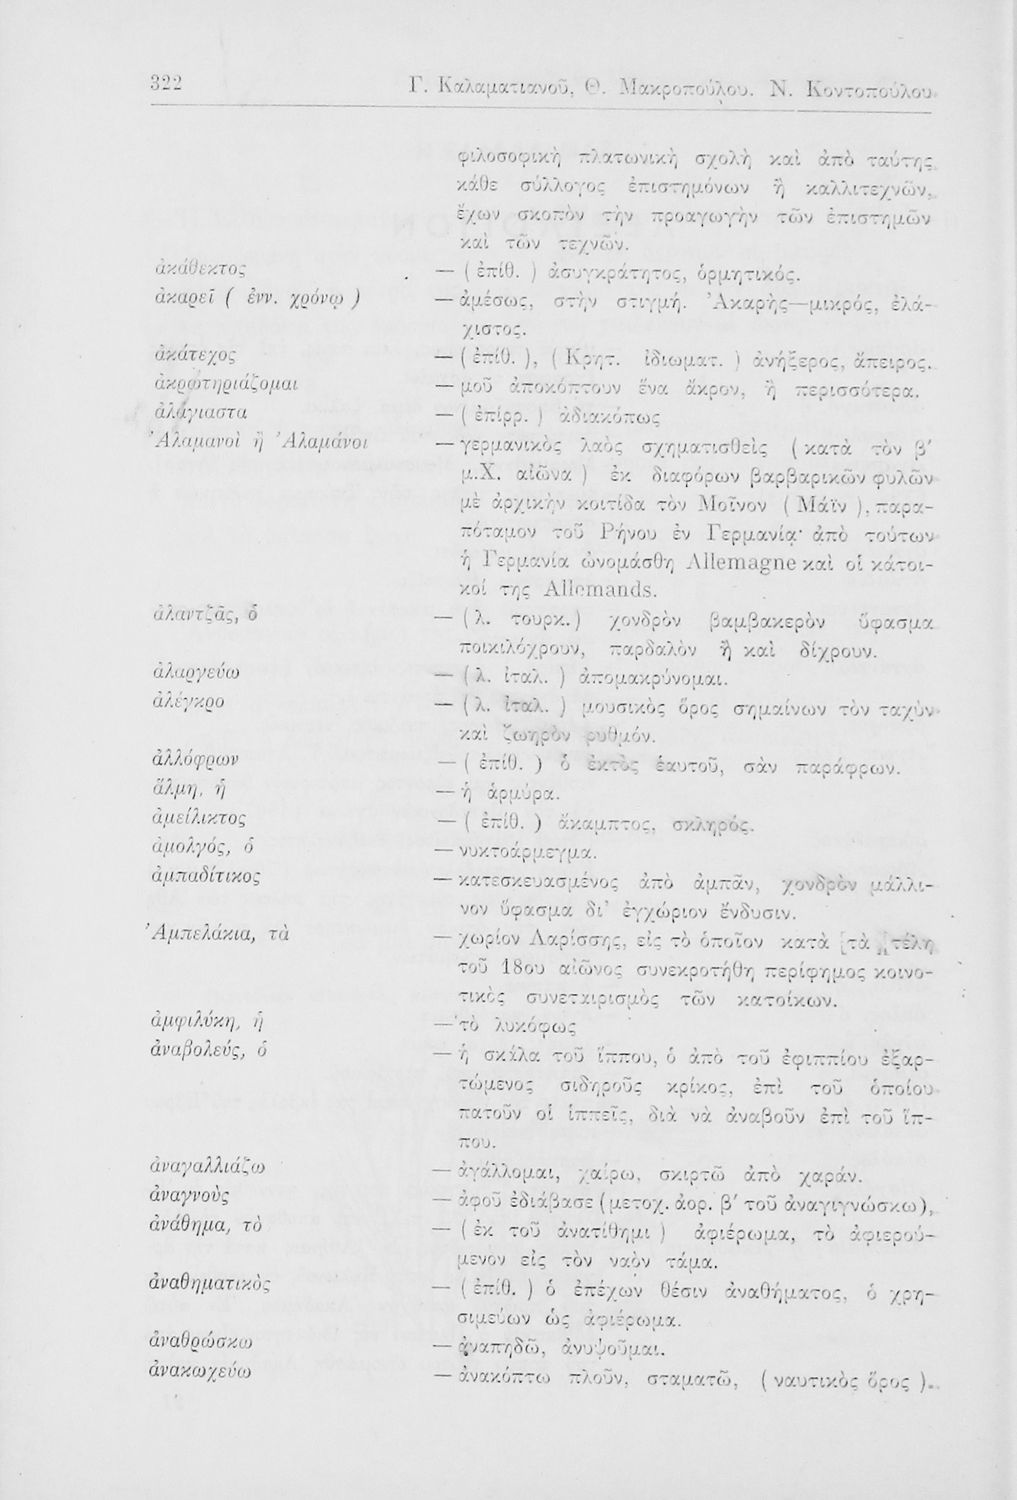 322 Γ. Καλαματιανοῦ, Θ. Μακροπούλου. Ν. Κοντοπούλου
φιλοσοφικὴ πλατωνικὴ σχολὴ καὶ ἀπὸ ταύτης
κάθε σύλλογος ἐπιστημόνων ἢ καλλιτεχνῶν,
ἔχων σκοπὸν τὴν προαγωγὴν τῶν ἐπιστημῶν
καὶ τῶν τεχνῶν.
ἀκάθεκτος — ( ἐπίθ. ) ἀσυγκράτητος, ὁρμητικός.
ἀκαρεῖ ( ἐνν. χρόνῳ ) — ἀμέσως, στὴν στιγμή. Ἀκαρὴς—μικρός, ἐλά-
χιστος.
ἀκάτεχος — ( ἐπίθ. ), ( Κρητ. ἰδιωματ. ) ἀνήξερος, ἄπειρος.
ἀκρωτηριάζομαι — μοῦ ἀποκόπτουν ἕνα ἄκρον, ἢ περισσότερα.
ἀλάγιαστα — ( ἐπίρρ. ) ἀδιακόπως
Ἀλαμανοὶ ἢ Ἀλαμάνοι — γερμανικὸς λαὸς σχηματισθεὶς ( κατὰ τὸν β′
μ.Χ. αἰῶνα ) ἐκ διαφόρων βαρβαρικῶν φυλῶν
μὲ ἀρχικὴν κοιτίδα τὸν Μοῖνον ( Μάϊν ), παρα-
πόταμον τοῦ Ρήνου ἐν Γερμανίᾳ· ἀπὸ τούτων
ἡ Γερμανία ὠνομάσθη Allemagne καὶ οἱ κάτοι-
κοί της Allemands.
ἀλαντζᾶς, ὁ — ( λ. τουρκ.) χονδρὸν βαμβακερὸν ὕφασμα
ποικιλόχρουν, παρδαλὸν ἢ καὶ δίχρουν.
ἀλαργεύω — ( λ. ἰταλ. ) ἀπομακρύνομαι.
ἀλέγκρο — ( λ. ἰταλ. ) μουσικὸς ὅρος σημαίνων τὸν ταχὺν
καὶ ζωηρὸν ρυθμόν.
ἀλλόφρων — ( ἐπίθ. ) ὁ ἐκτὸς ἑαυτοῦ, σὰν παράφρων.
ἅλμη, ἡ — ἡ ἁρμύρα.
ἀμείλικτος — ( ἐπίθ. ) ἄκαμπτος, σκληρός.
ἀμολγός, ὁ — νυκτοάρμεγμα.
ἀμπαδίτικος — κατεσκευασμένος ἀπὸ ἀμπᾶν, χονδρὸν μάλλι-
νον ὕφασμα δι᾽ ἐγχώριον ἔνδυσιν.
Ἀμπελάκια, τὰ — χωρίον Λαρίσσης, εἰς τὸ ὁποῖον κατὰ τὰ τέλη
τοῦ 18ου αἰῶνος συνεκροτήθη περίφημος κοινο-
τικὸς συνεταιρισμὸς τῶν κατοίκων.
ἀμφιλύκη, ἡ — τὸ λυκόφως
ἀναβολεύς, ὁ — ἡ σκάλα τοῦ ἵππου, ὁ ἀπὸ τοῦ ἐφιππίου ἐξαρ-
τώμενος σιδηροῦς κρίκος, ἐπὶ τοῦ ὁποίου
πατοῦν οἱ ἱππεῖς, διὰ νὰ ἀναβοῦν ἐπὶ τοῦ ἵπ-
που.
ἀναγαλλιάζω — ἀγάλλομαι, χαίρω, σκιρτῶ ἀπὸ χαράν.
ἀναγνοὺς — ἀφοῦ ἐδιάβασε (μετοχ. ἀορ. β′ τοῦ ἀναγιγνώσκω),
ἀνάθημα, τὸ — ( ἐκ τοῦ ἀνατίθημι ) ἀφιέρωμα, τὸ ἀφιερού-
μενον εἰς τὸν ναὸν τάμα.
ἀναθηματικὸς — ( ἐπίθ. ) ὁ ἐπέχων θέσιν ἀναθήματος, ὁ χρη-
σιμεύων ὡς ἀφιέρωμα.
ἀναθρώσκω — ἀναπηδῶ, ἀνυψοῦμαι.
ἀνακωχεύω — ἀνακόπτω πλοῦν, σταματῶ, ( ναυτικὸς ὅρος ).